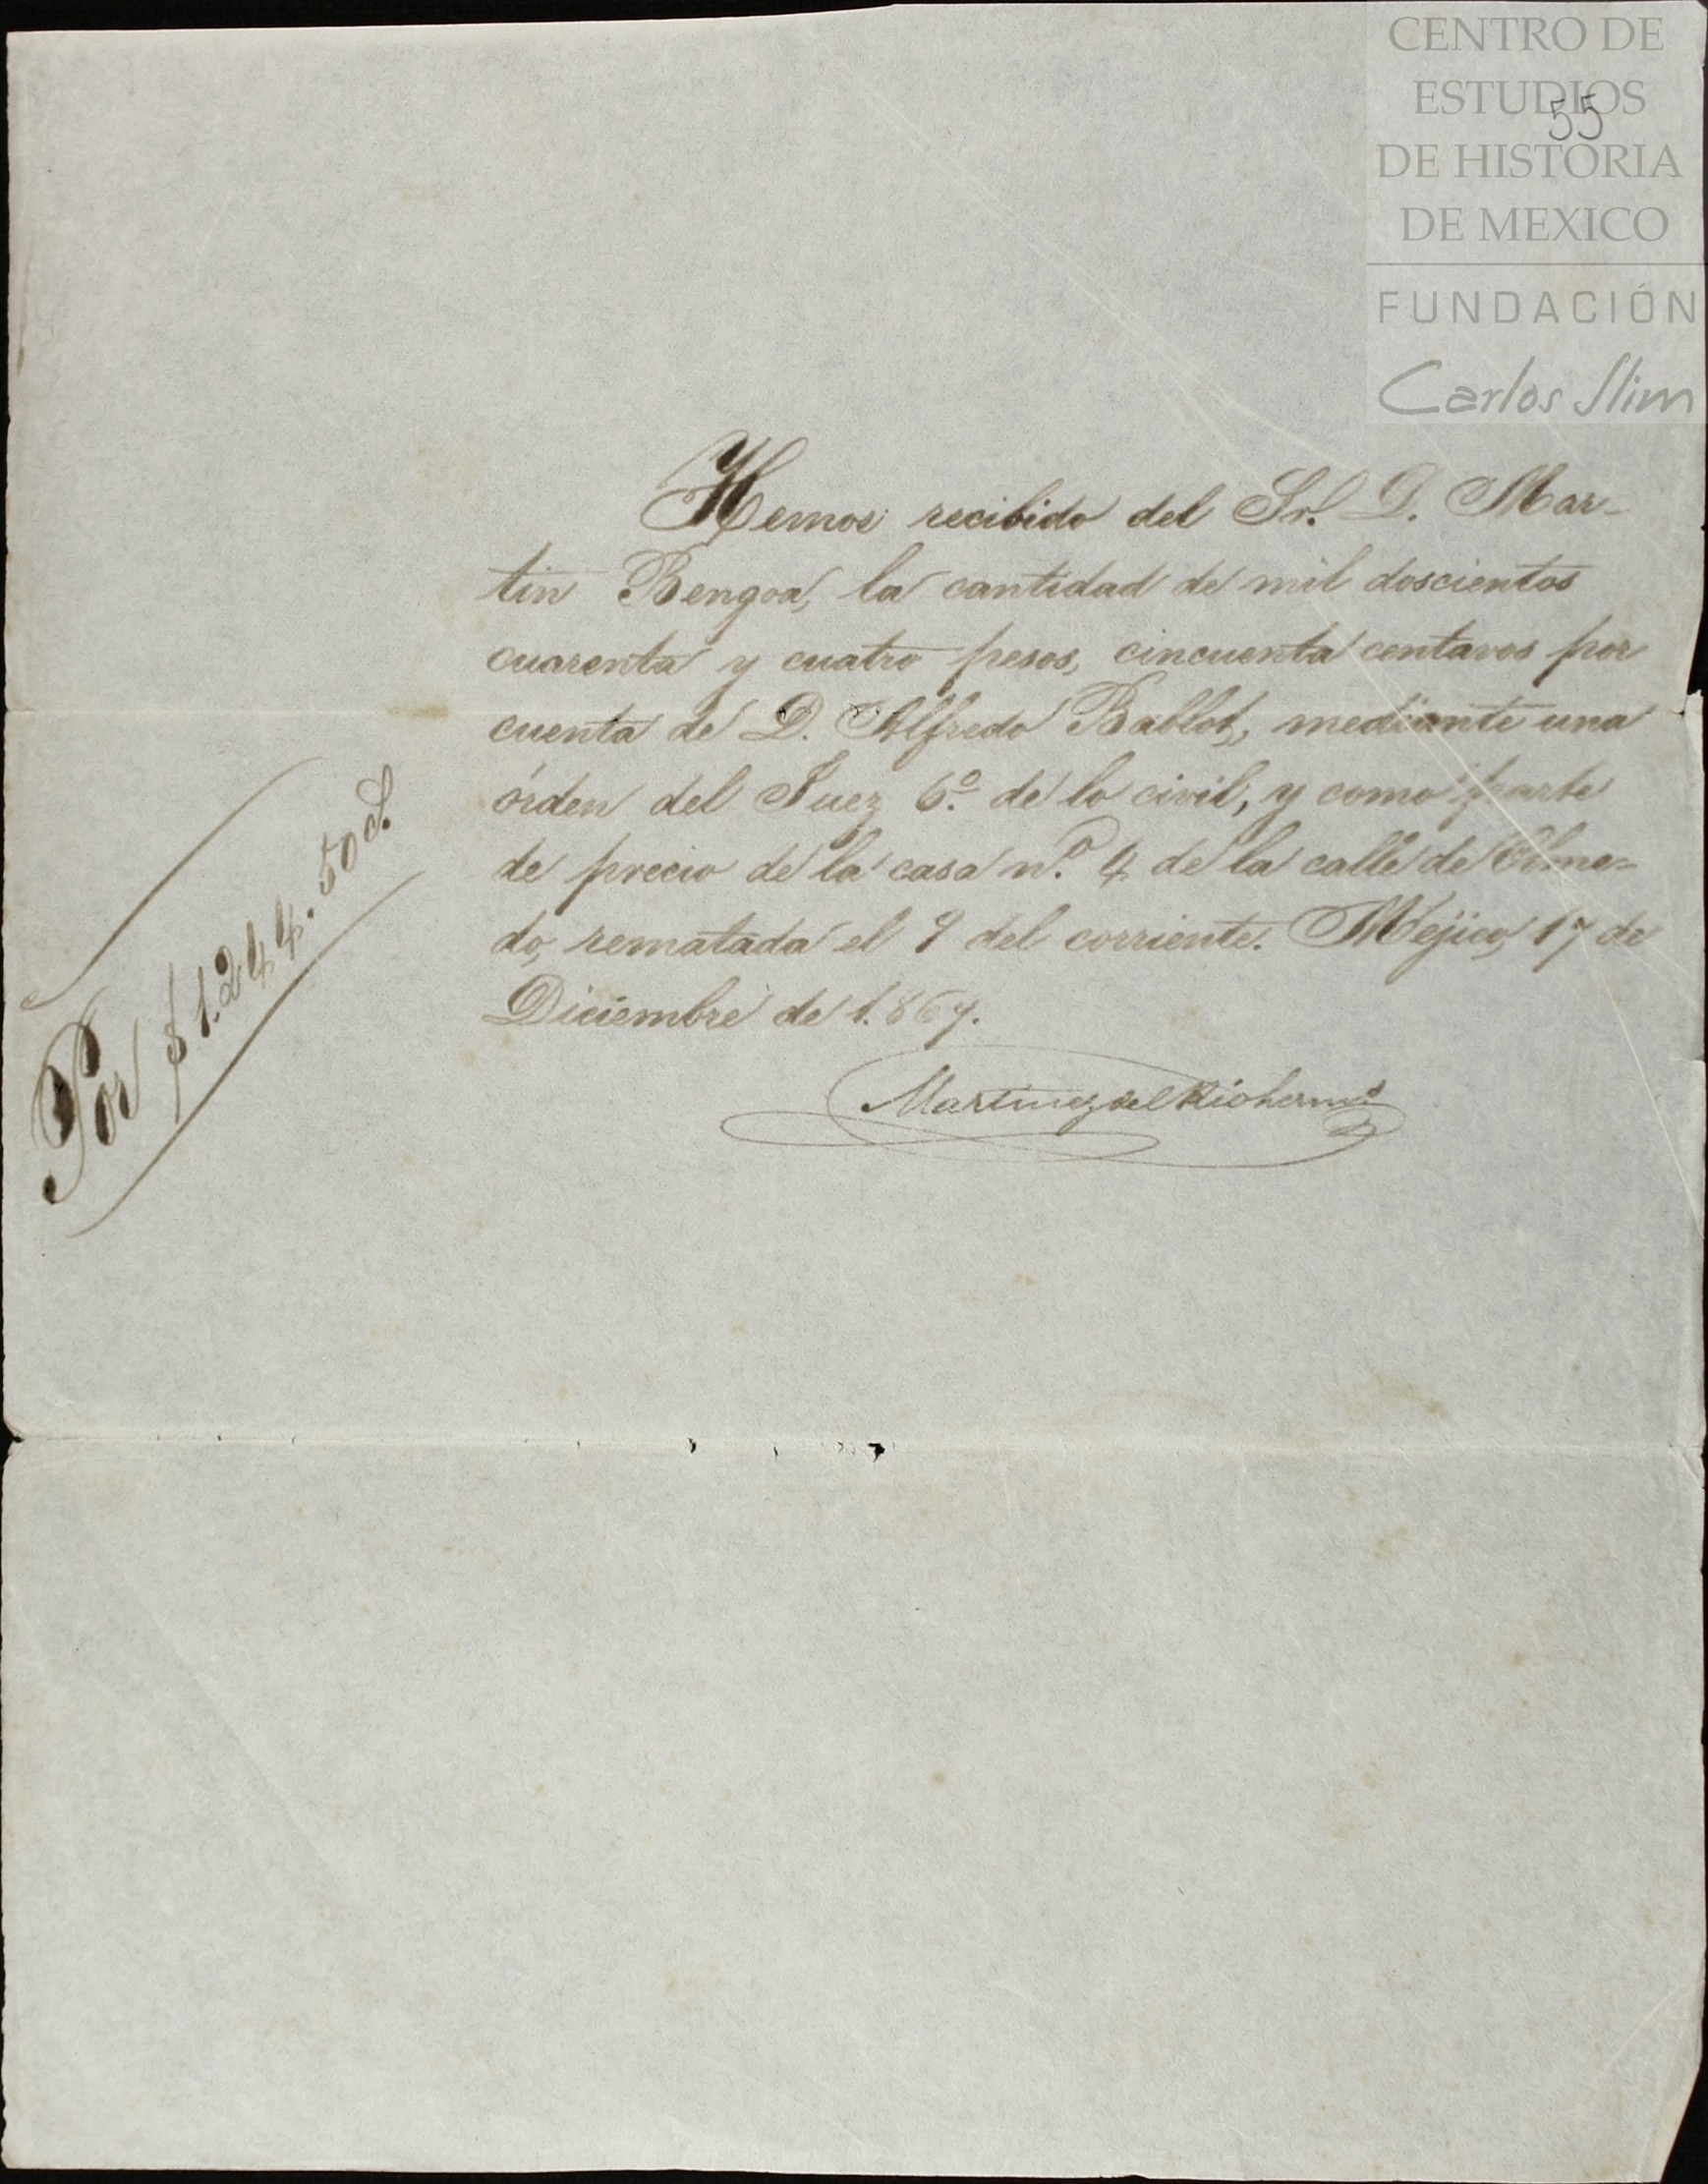 CENTRO DE
ESTUDIOS
55
DE HISTORIA
DE MEXICO
FUNDACIÓN
Carlos Slim
Hemos recibido del Sr. D. Mar-
tin Bengoa, la cantidad de mil doscientos
cuarenta y cuatro pesos, cincuenta centavos por
cuenta de D. Alfredo Bablot, mediante una
órden del Juez 6.º de lo civil, y como parte
de precio de la casa n.º 4 de la calle de Olme-
do, rematada el 9 del corriente. Méjico, 17 de
Diciembre de 1.867.
Martinez del Rio herms
Por $1.244.50 c.